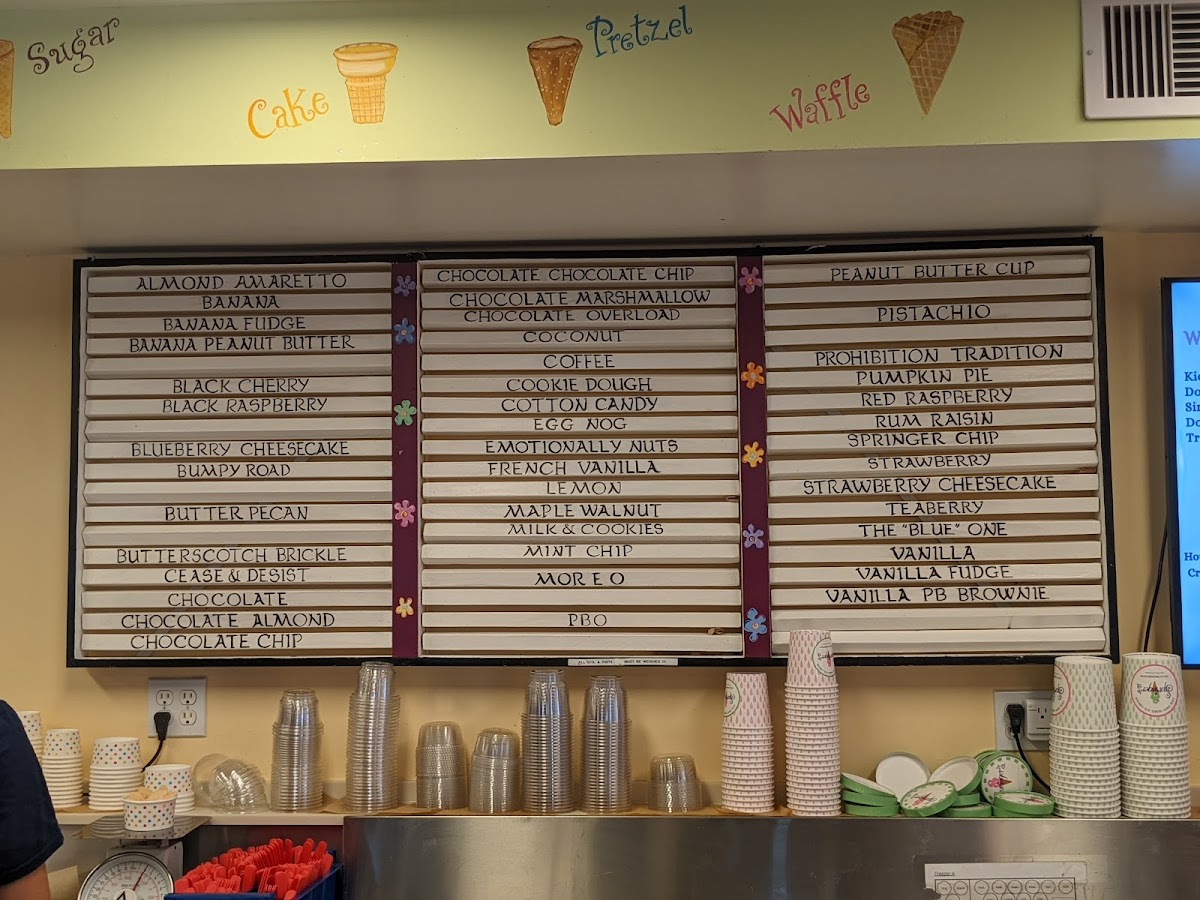 Sugar
Cake
Pretzel
Waffle
ALMOND AMARETTO
BANANA
BANANA FUDGE
BANANA PEANUT BUTTER
BLACK CHERRY
BLACK RASPBERRY
BLUEBERRY CHEESECAKE
BUMPY ROAD
BUTTER PECAN
BUTTERSCOTCH BRICKLE
CEASE & DESIST
CHOCOLATE
CHOCOLATE ALMOND
CHOCOLATE CHIP
CHOCOLATE CHOCOLATE CHIP
CHOCOLATE MARSHMALLOW
CHOCOLATE OVERLOAD
COCONUT
COFFEE
COOKIE DOUGH
COTTON CANDY
EGG NOG
EMOTIONALLY NUTS
FRENCH VANILLA
LEMON
MAPLE WALNUT
MILK & COOKIES
MINT CHIP
MOR E O
PBO
PEANUT BUTTER CUP
PISTACHIO
PROHIBITION TRADITION
PUMPKIN PIE
RED RASPBERRY
RUM RAISIN
SPRINGER CHIP
STRAWBERRY
STRAWBERRY CHEESECAKE
TEABERRY
THE "BLUE" ONE
VANILLA
VANILLA FUDGE
VANILLA PB BROWNIE